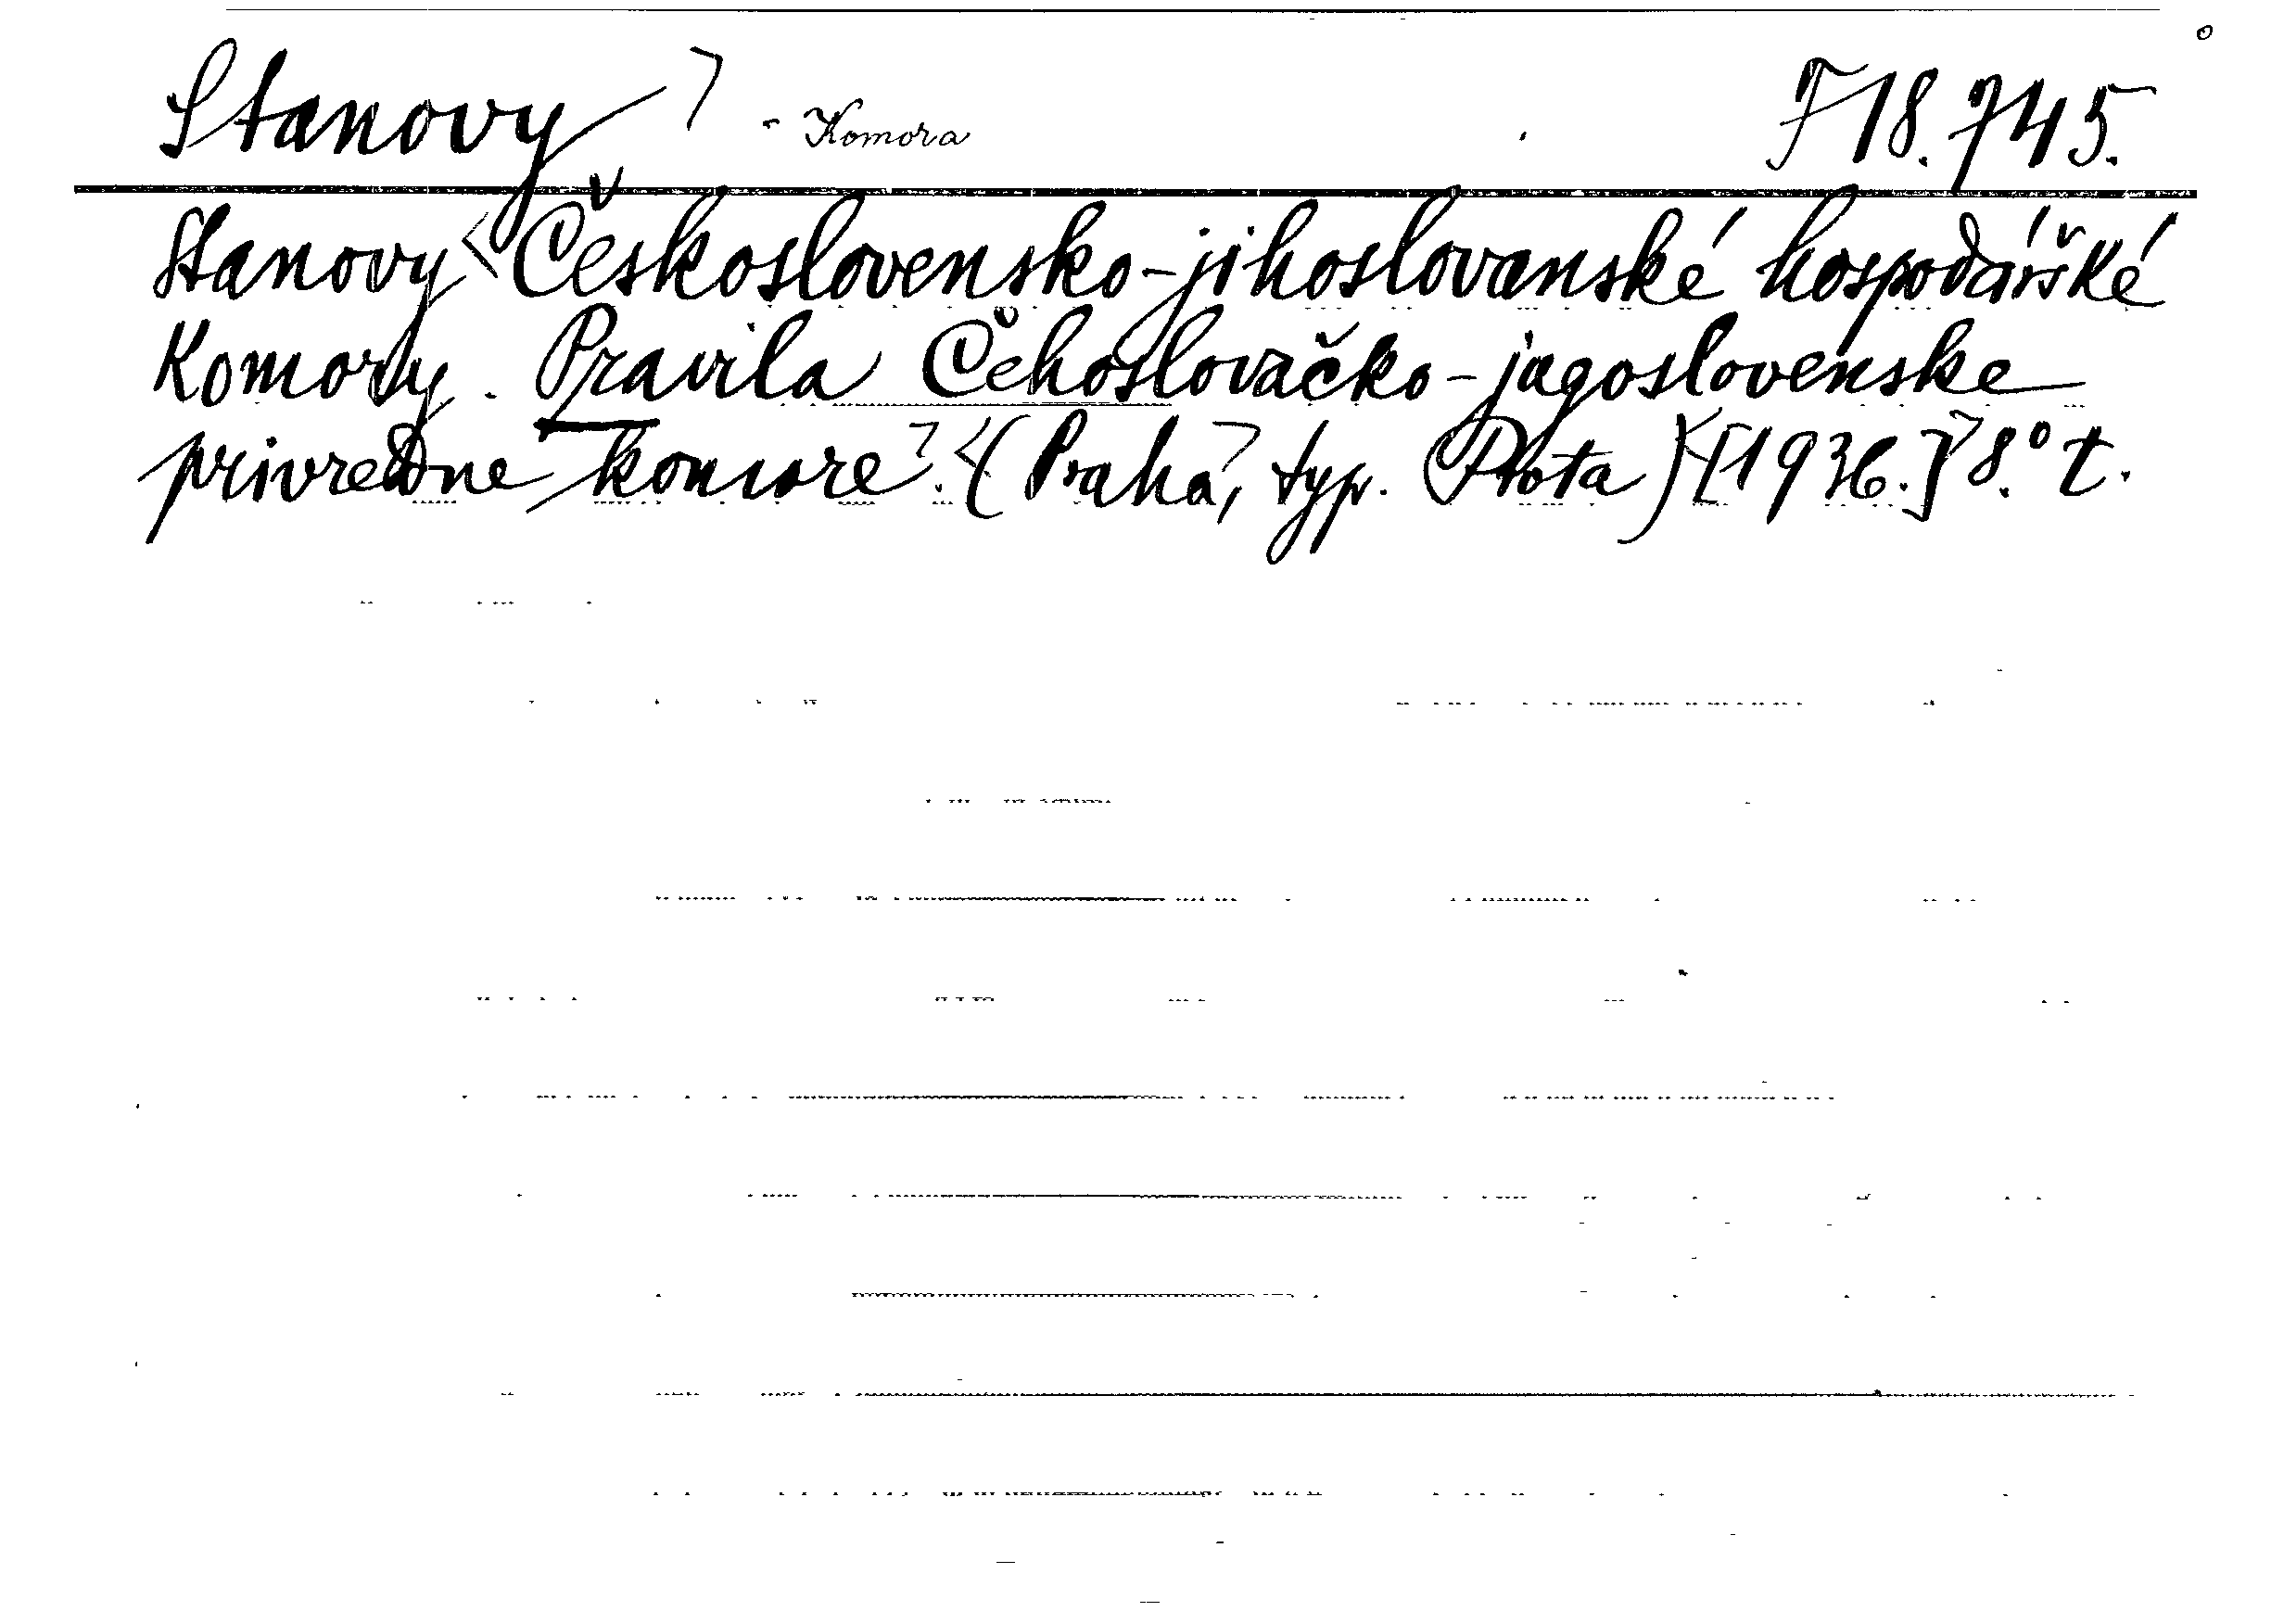 Stanovy - Komora F 18.745.
Stanovy Československo-jihoslovanské hospodářské
Komory. Pravila Čehoslovačko-jagoslovenske
privredne komore. (Praha, typ. Prota) [1936.] 8.° t.